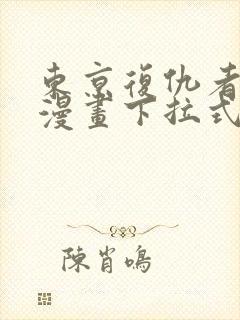 東京復仇者
漫畫下拉式
陳肖鳴